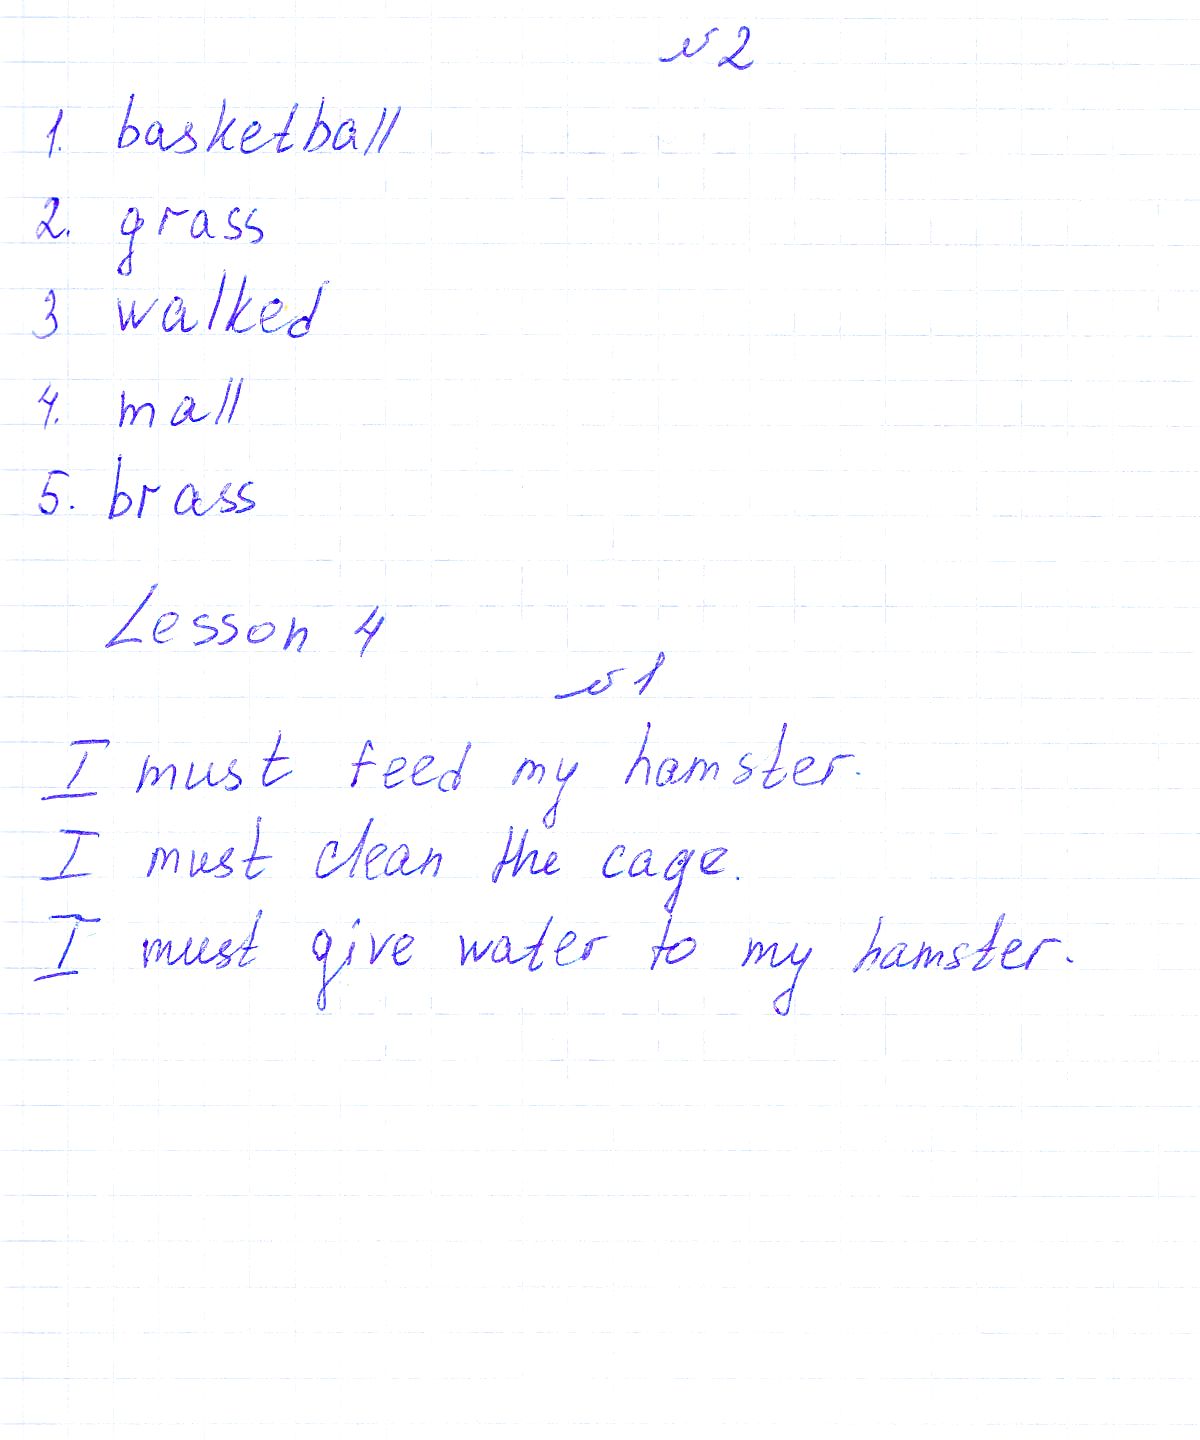 №2
1. basketball
2. grass
3 walked
4. mall
5. brass
Lesson 4
№1
I must feed my hamster.
I must clean the cage.
I must give water to my hamster.